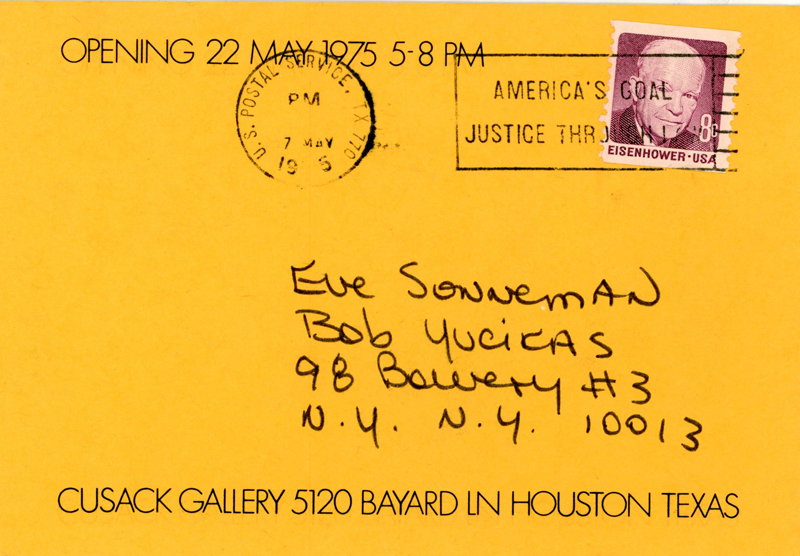 OPENING 22 MAY 1975 5-8 PM
U.S. POSTAL SERVICE, TX 770
PM
7 MAY
19 5
AMERICA'S GOAL
JUSTICE THROUGH
8c
EISENHOWER·USA
Eve Sonneman
Bob Yucikas
98 Bowery #3
N.Y. N.Y. 10013
CUSACK GALLERY 5120 BAYARD LN HOUSTON TEXAS